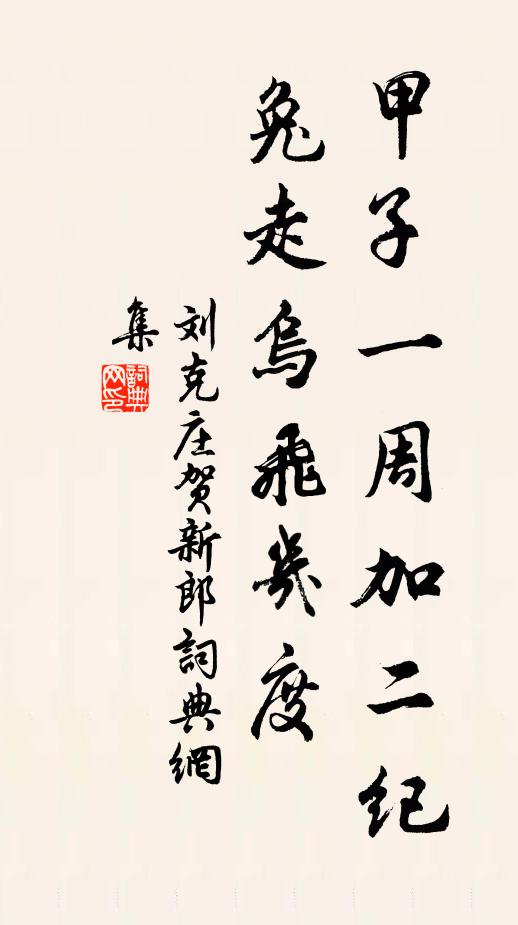 甲子一周加二纪
兔走乌飞几度
刘克庄贺新郎词典网
集
词典网印